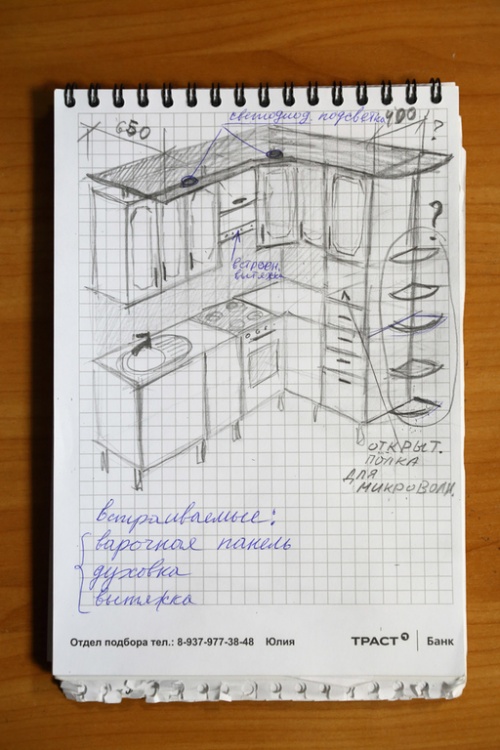 светодиод. подсветка
650
400
?
?
встроен.
вытяжка
ОТКРЫТ.
ПОЛКА
ДЛЯ
МИКРОВОЛН.
встраиваемые:
варочная панель
духовка
вытяжка
Отдел подбора тел.: 8-937-977-38-48 Юлия ТРАСТ Банк